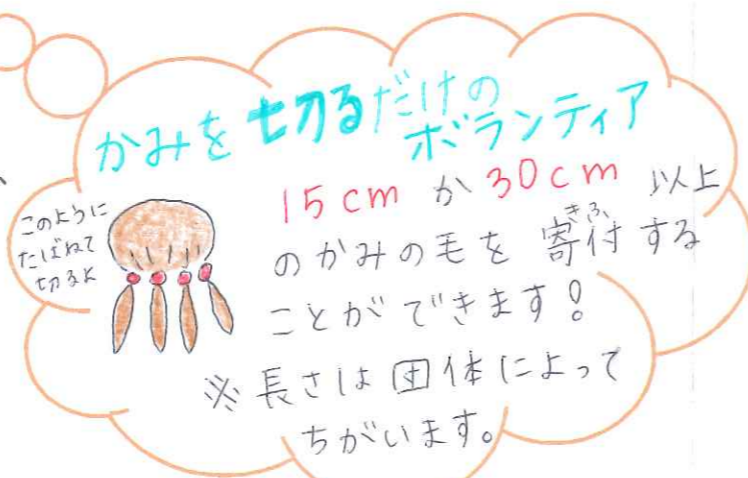 かみを切るだけの
ボランティア
このように
たばねて
切るよ
15cmか30cm以上
きふ
のかみの毛を寄付する
ことができます!
※長さは団体によって
ちがいます。